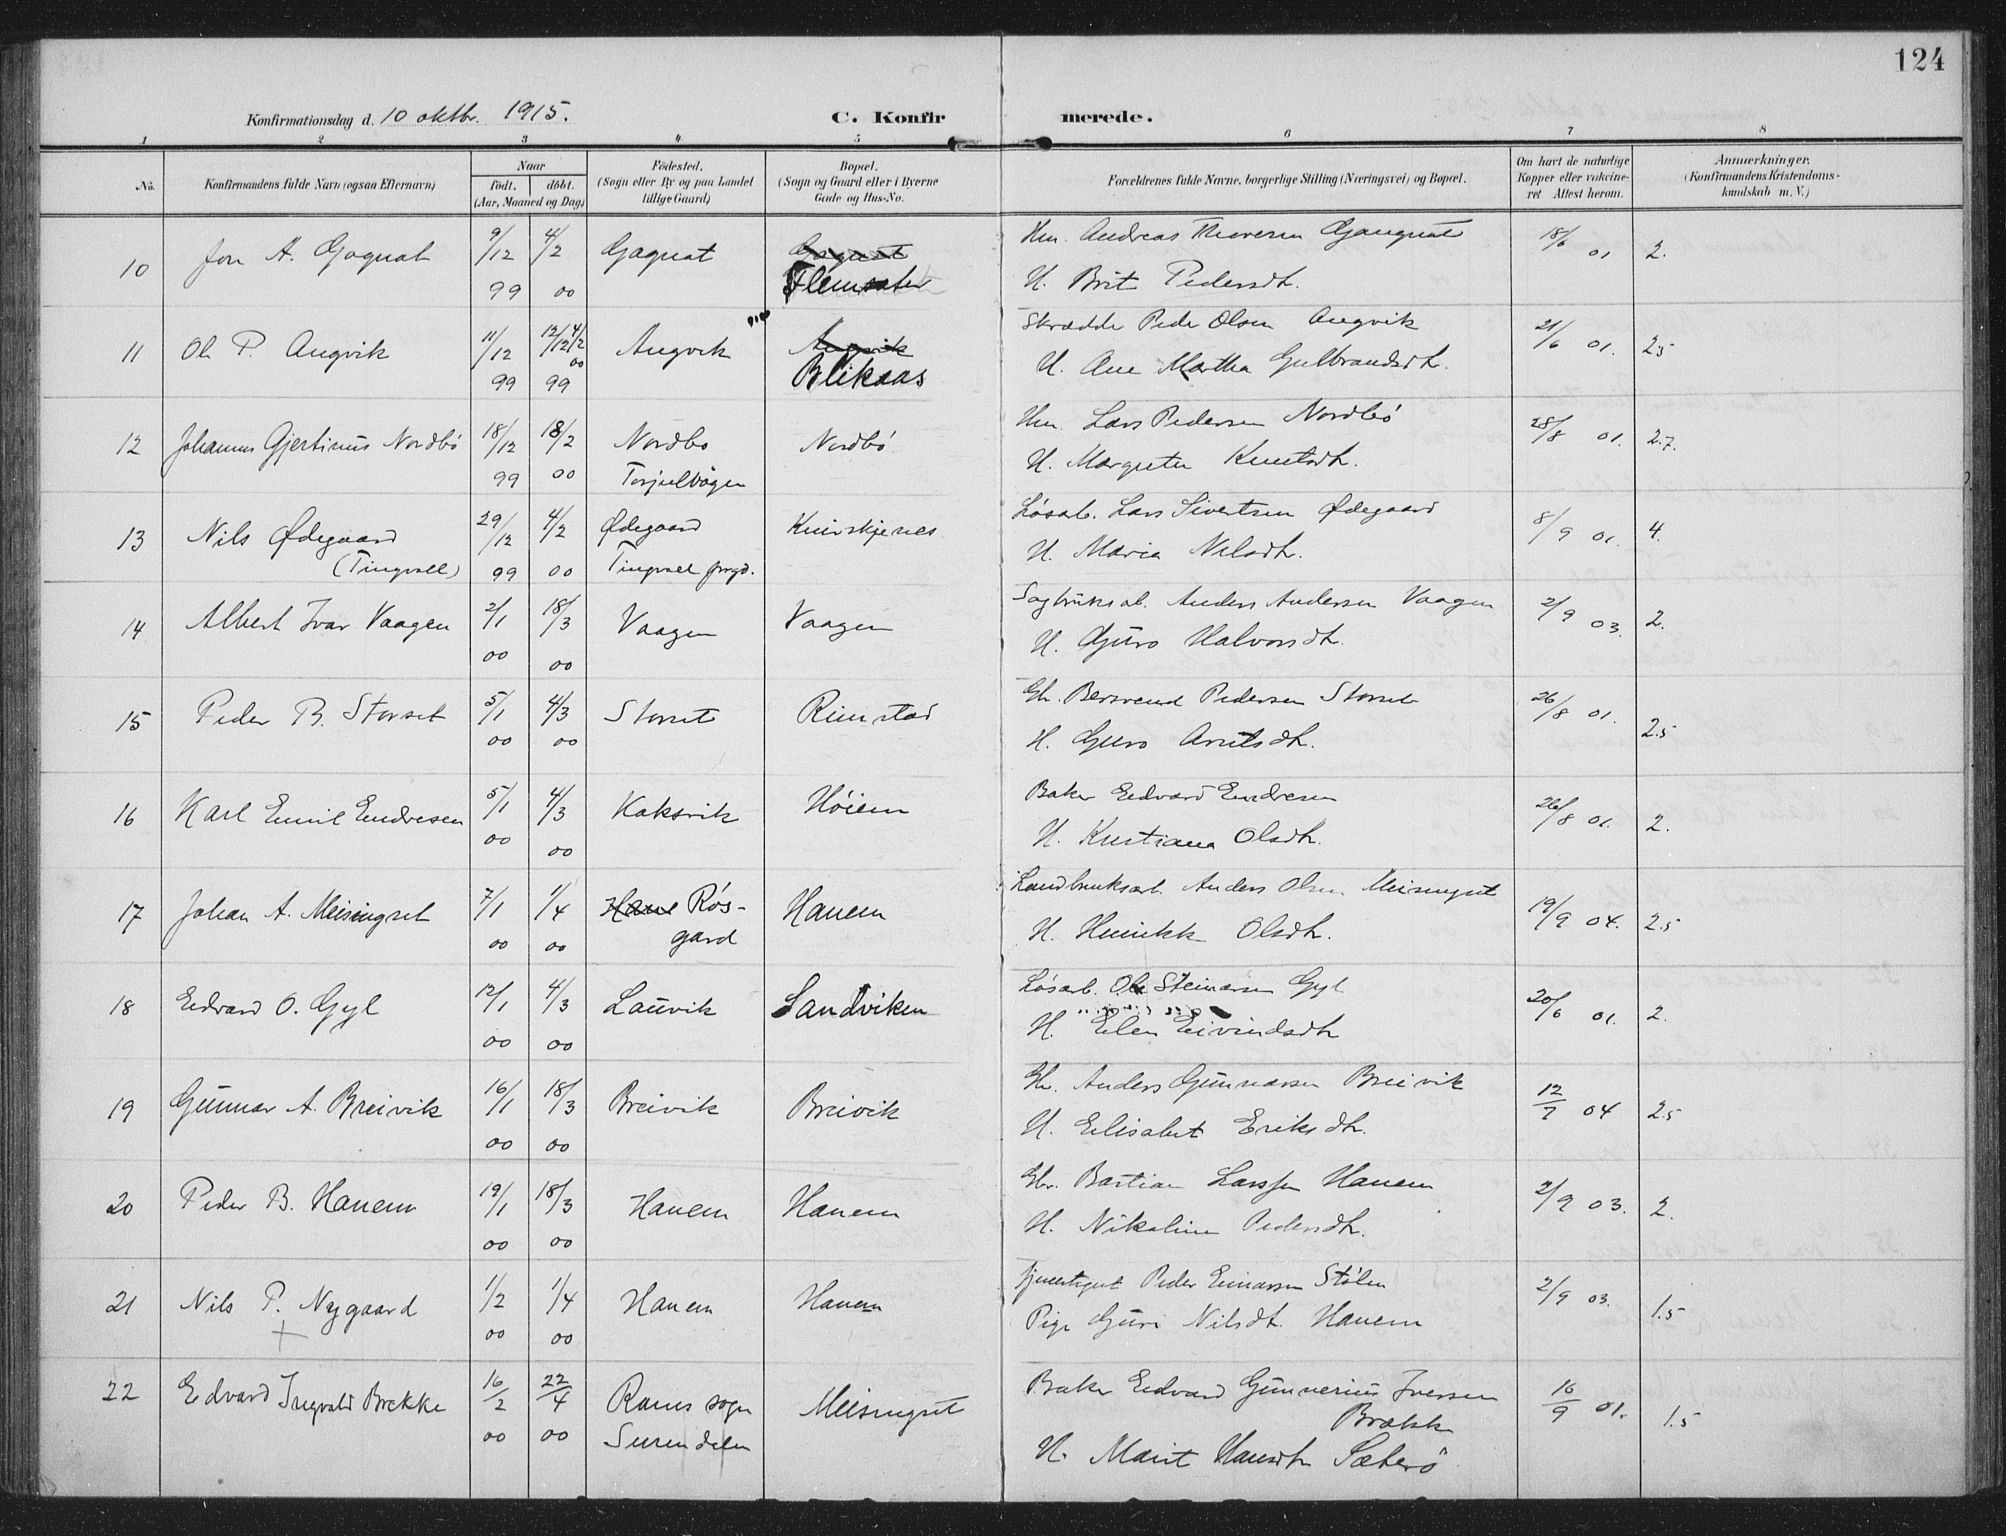 124
Konfirmationsdag d. 10 oktbr. 1915.
C. Konfirmerede.
1 2 3 4 5 6 7 8
No.
Konfirmandens fulde Navn (ogsaa Efternavn)
Naar
födt. döbt.
(Aar, Maaned og Dag)
Födested.
(Sogn eller By og paa Landet
tillige Gaard)
Bopæl.
(Sogn og Gaard eller i Byerne
Gade og Hus-No.
Forældrenes fulde Navne, borgerlige Stilling (Næringsvei) og Bopæl.
Om havt de naturlige
Kopper eller vakcine-
ret Attest herom.
Anmærkninger.
(Konfirmandens Kristendoms-
kundskab m. V.)
10 Jon A. Gagnat 9/12 99 4/2 00 Gagnat Gagnat Flemsæter
Andreas Gaugnat 18/6 01 2.
H. Brit Pedersdt.
11 Ole P. Angvik 11/12 99 12/12 99 4/2 00 Angvik Angvik Blikaas
Skrædder Peder Olsen Angvik 21/6 01. 2.5
H. Ane Martha Gulbrandsdt.
12 Johannes Gjertinus Nordbö 18/12 99 18/2 00 Nordbo Torjulvågen Nordbö
Lars Pedersen Nordbö 28/8 01. 2.7.
H. Margrete Knutsdt.
13 Nils Ødegaard (Tingvoll) 29/12 99 4/2 00 Ødegaard Tingvoll prgd. Knivskjenes
Løsarb. Lars Sivertsen Ødegaard 8/9 01. 4.
H. Maria Nilsdt.
14 Albert Ivar Vaagen 2/1 00 18/3 00 Vaagen Vaagen
Sagbruksarb. Anders Andersen Vaagen 2/9 03. 2.
H. Guro Halvorsdt.
15 Peder B. Storset 5/1 00 4/3 00 Storset Rimstad
Gbr. Bersvend Pedersen Storset 26/8 01. 2.5
H. Guro Arntsdt.
16 Karl Emil Endresen 5/1 00 4/3 00 Koksvik Höiem
Baker Edvard Endresen 26/8 01. 2.
H. Kristiana Olsdt.
17 Johan A. Meisingset 7/1 00 1/4 00 Røs-
gard Hanem
Landbruksarb. Anders Olsen Meisingset 19/9 04. 2.5
H. Henrikke Olsdt.
18 Edvard O. Gyl 12/1 00 4/3 00 Lauvik Sandviken
Løsarb. Ole Steinarsen Gyl 20/6 01. 2.
H. Elen Eivindsdt
19 Gunnar A. Breivik 16/1 00 18/3 00 Breivik Breivik
Gbr. Anders Gunnarsen Breivik 12/7 04 2.5
H. Elisabet Eriksdt.
20 Peder B. Hanem 19/1 00 18/3 00 Hanem Hanem
Gbr. Bastian Larssen Hanem 2/9 03. 2.
H. Nikoline Pedersdt.
21 Nils P. Nygaard 1/2 00 1/4 00 Hanem Hanem
Tjenestegut Peder Einarsen Stølen 2/9 03. 1.5
Pige Guri Nilsdt. Hanem
22 Edvard Ingvald Brekke 16/2 00 22/4 00 Ranes sogn Surendalen Meisingset
Baker Edvard Gunnerius Iversen
Brækk 16/9 01. 1.5
H. Marit Hansdt Sæterø